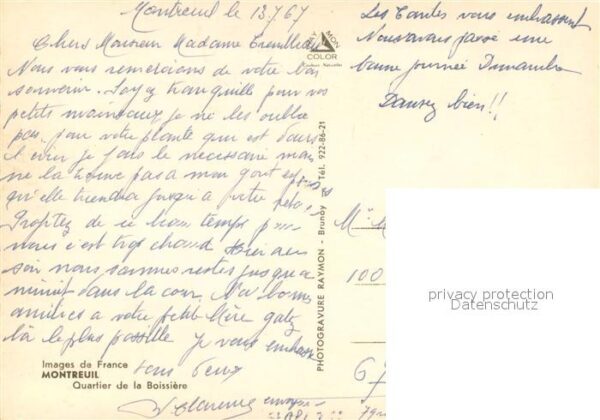 Montreuil le 13.7.67
Chers Monsieur Madame
Nous vous remercions de votre bon
souvenir. Soyez tranquille pour vos
petits moineaux je ne les oublie
pas. pour votre plante qui est dans
je fais le nécessaire mais
ne la trouve pas a mon gout
qu'elle tiendra jusqu'a votre
Profitez de ce beau temps
nous c'est trop chaud hier au
soir nous sommes restés jusqu'a
minuit dans la cour.
amitiés a votre petite Mère gatez
la le plus possible je vous embrasse
tous deux
RAYMON
COLOR
Les Tantes vous embrassent
Nous avons passé une
bonne journée Dimanche
Dansez bien!!
PHOTOGRAVURE RAYMON - Brunoy - Tél. 922-86-21
100
privacy protection
Datenschutz
67
Images de France
MONTREUIL
Quartier de la Boissière